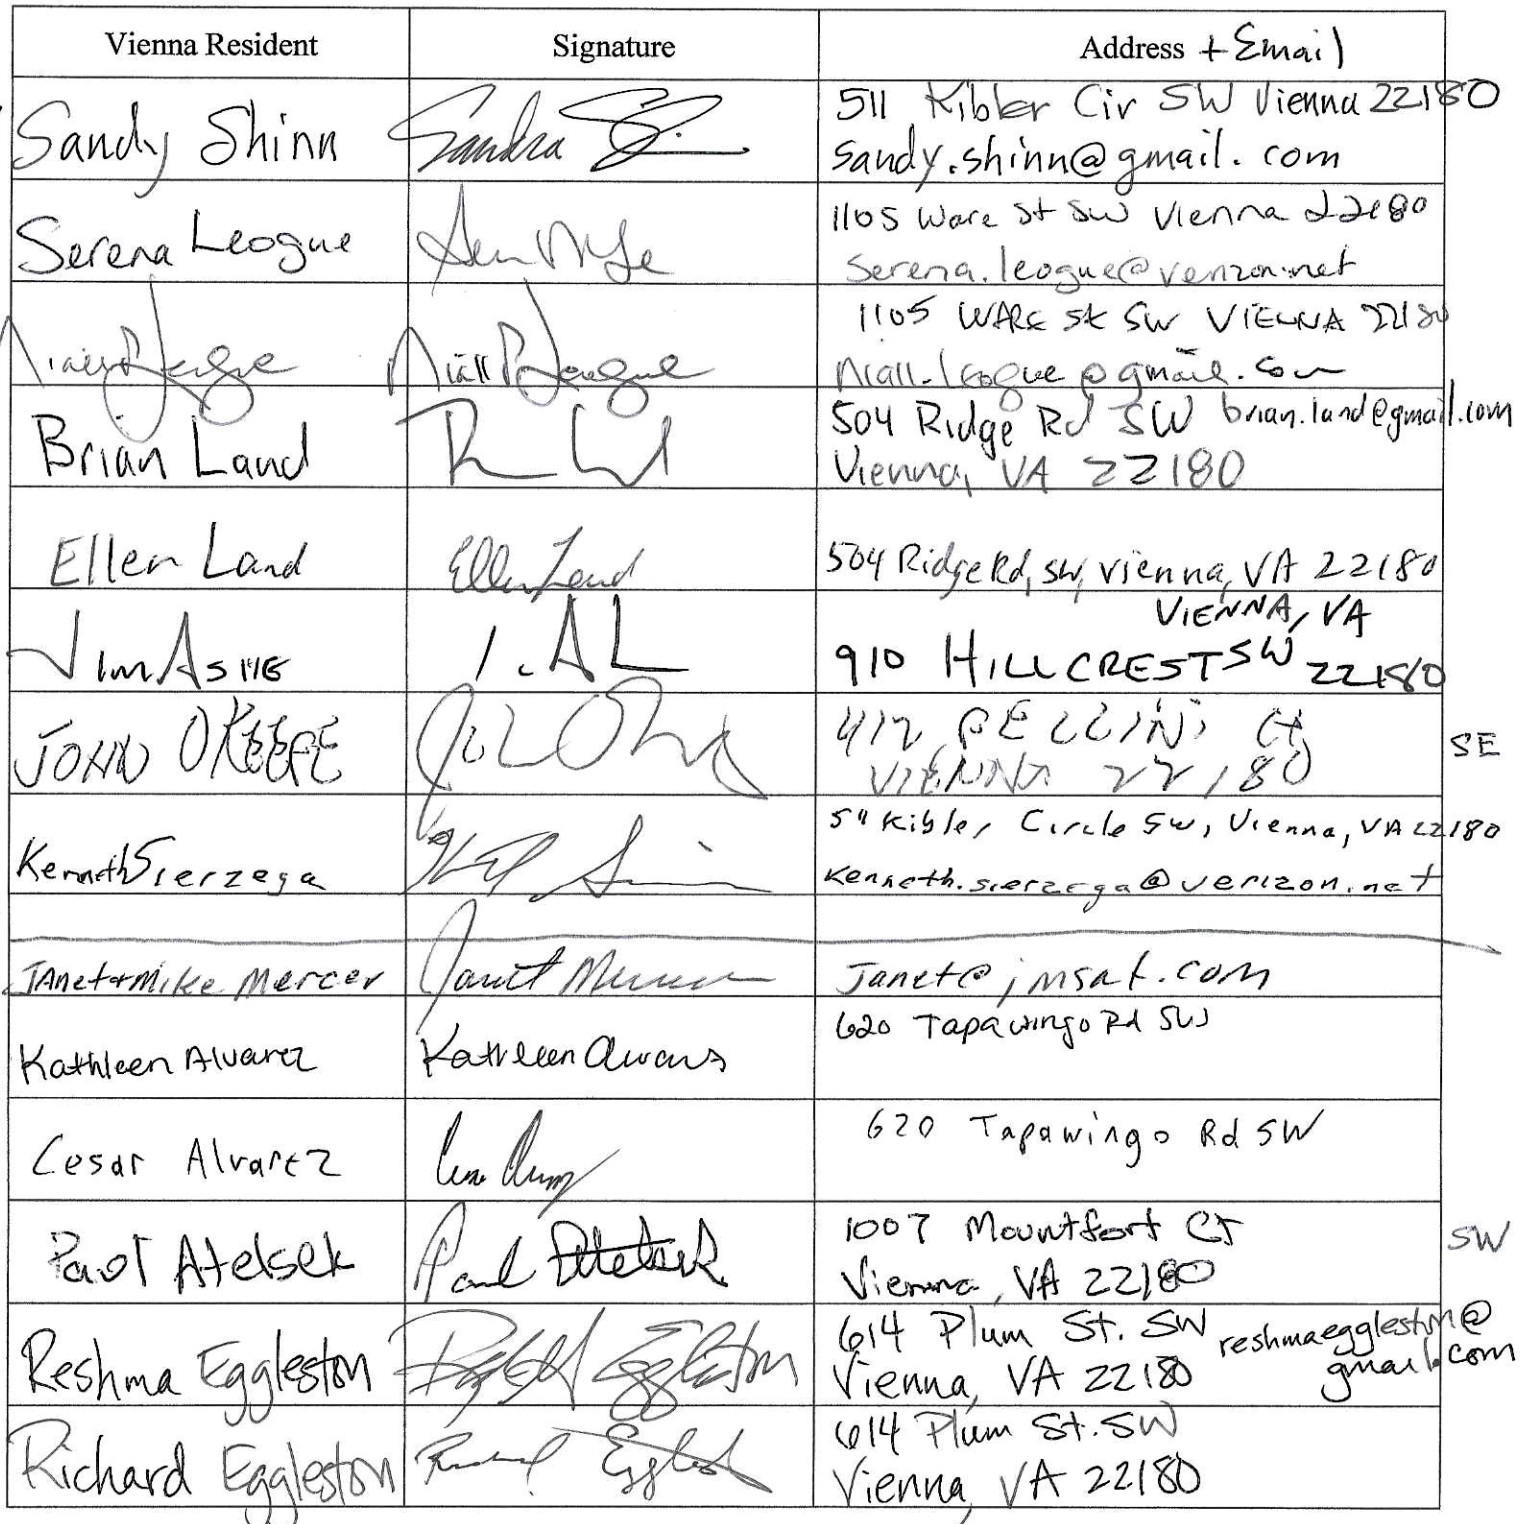 Vienna Resident Signature Address + Email
Sandy Shinn Sandra 511 Kibler Cir SW Vienna 22180
sandy.shinn@gmail.com
Serena Leogue 1105 Ware St SW Vienna 22180
serena.leogue@verizon.net
Niall P Leogue Niall P Leogue 1105 WARE St SW VIENNA 22180
niall.leogue@gmail.com
Brian Land 504 Ridge Rd SW brian.land@gmail.com
Vienna, VA 22180
Ellen Land Ellen Land 504 Ridge Rd, SW, Vienna, VA 22180
VIENNA, VA
Jim ASHE 910 HILLCREST SW 22180
JOHN OKEEFE 412 BELLINI Ct SE
VIENNA 22180
Kenneth Sierzega 511 Kibler Circle SW, Vienna, VA 22180
Kenneth.sierzega@verizon.net
JAnet+Mike Mercer Janet Mercer Janet@jmsat.com
Kathleen Alvarez Kathleen Alvarez 620 Tapawingo Rd SW
Cesar Alvarez 620 Tapawingo Rd SW
Paul Atelsek Paul Atelsek 1007 Mountfort Ct SW
Vienna, VA 22180
Reshma Eggleston Eggleston 614 Plum St. SW reshmaeggleston@
Vienna, VA 22180 gmail.com
Richard Eggleston Richard Eggleston 614 Plum St. SW
Vienna, VA 22180